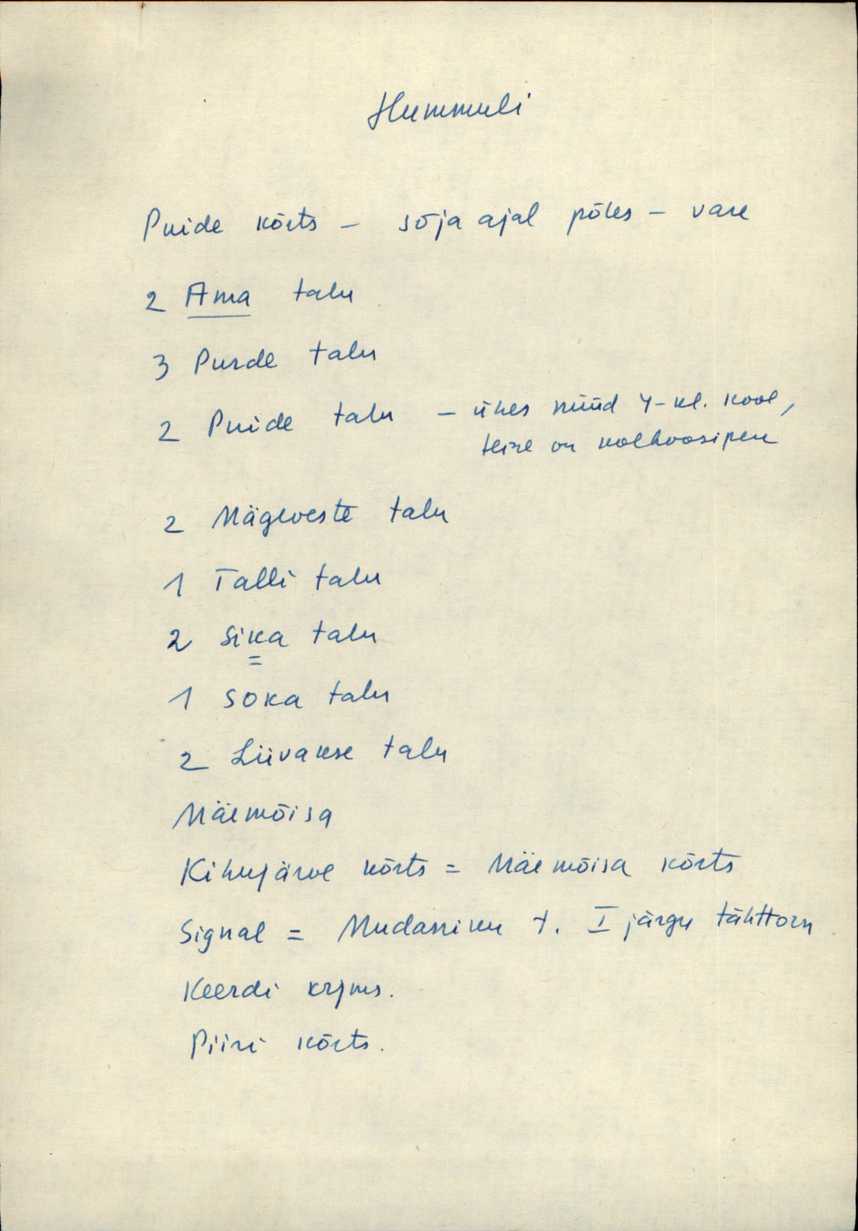 Hummuli
Puide kõrts – sõja ajal põles – vare
2 Ama talu
3 Purde talu
2 Puide talu – ühes nüüd 4-kl. kool,
teine on kolhoosipere
2 Mägeveste talu
1 Talli talu
2 Sika talu
1 Soka talu
2 Liivakse talu
Mäemõisa
Kihujärve kõrts = Mäemõisa kõrts
Signal = Mudasniku t. I järgu tähttorn
Keerdi krjms.
Piiri kõrts.